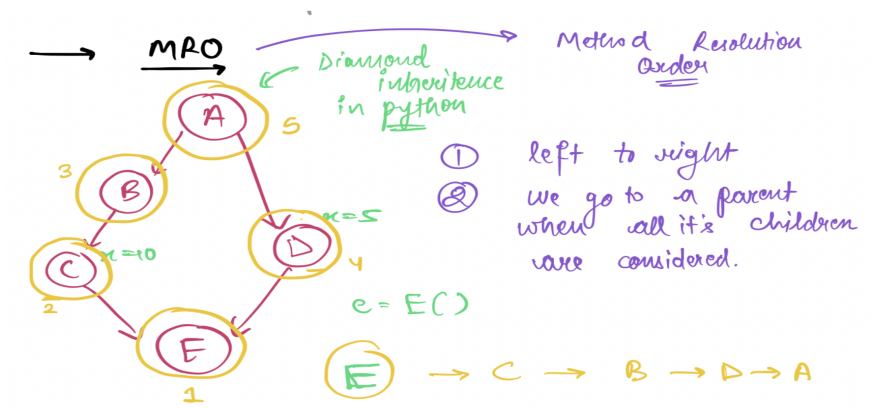 MRO
Method Resolution
Order
Diamond
inheritence
in python
A
5
3
B
① left to right
② we go to a parent
when all it's children
are considered.
x=5
D
4
x=10
C
2
e = E()
E
1
E → C → B → D → A